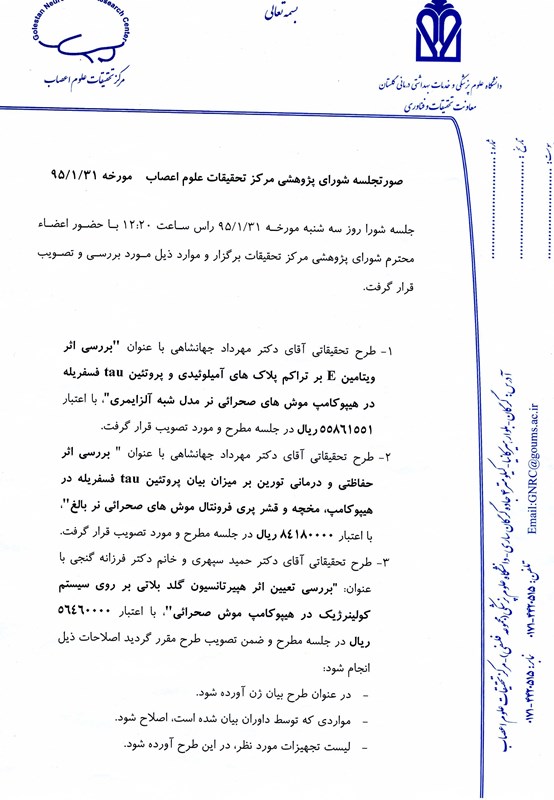 بسمه تعالی
Golestan Neuroscience Research Center
مرکز تحقیقات علوم اعصاب
دانشگاه علوم پزشکی و خدمات بهداشتی درمانی گلستان
معاونت تحقیقات و فناوری
شماره :
تاریخ :
پیوست :
صورتجلسه شورای پژوهشی مرکز تحقیقات علوم اعصاب مورخه ۹۵/۱/۳۱
جلسه شورا روز سه شنبه مورخه ۹۵/۱/۳۱ راس ساعت ۱۲:۲۰ با حضور اعضاء
محترم شورای پژوهشی مرکز تحقیقات برگزار و موارد ذیل مورد بررسی و تصویب
قرار گرفت.
۱- طرح تحقیقاتی آقای دکتر مهرداد جهانشاهی با عنوان "بررسی اثر
ویتامین E بر تراکم پلاک های آمیلوئیدی و پروتئین tau فسفریله
در هیپوکامپ موش های صحرائی نر مدل شبه آلزایمری"، با اعتبار
۵۵۸۶۱۵۵۱ ریال در جلسه مطرح و مورد تصویب قرار گرفت.
۲- طرح تحقیقاتی آقای دکتر مهرداد جهانشاهی با عنوان " بررسی اثر
حفاظتی و درمانی تورین بر میزان بیان پروتئین tau فسفریله در
هیپوکامپ، مخچه و قشر پری فرونتال موش های صحرائی نر بالغ"،
با اعتبار ۸۴۱۸۰۰۰۰ ریال در جلسه مطرح و مورد تصویب قرار گرفت.
۳- طرح تحقیقاتی آقای دکتر حمید سپهری و خانم دکتر فرزانه گنجی با
عنوان: "بررسی تعیین اثر هیپرتانسیون گلد بلاتی بر روی سیستم
کولینرژیک در هیپوکامپ موش صحرائی"، با اعتبار ۵۶۴۶۰۰۰۰
ریال در جلسه مطرح و ضمن تصویب طرح مقرر گردید اصلاحات ذیل
انجام شود:
- در عنوان طرح بیان ژن آورده شود.
- مواردی که توسط داوران بیان شده است، اصلاح شود.
- لیست تجهیزات مورد نظر، در این طرح آورده شود.
آدرس: گرگان- جاده گرگان ساری- دانشگاه علوم پزشکی - مرکز تحقیقات علوم اعصاب
تلفن: ۰۱۷۱-۴۴۲۰۵۱۵ نمابر: ۰۱۷۱-۴۴۲۰۵۱۵ Email:GNRC@goums.ac.ir